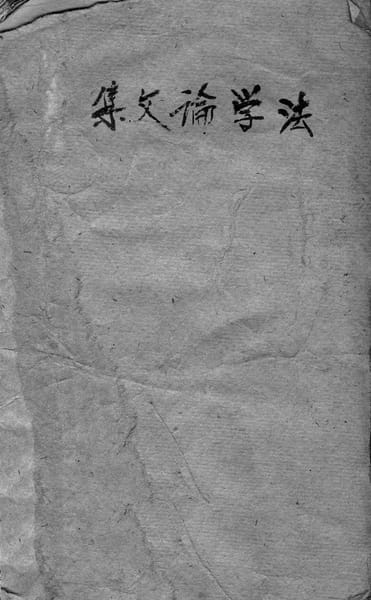 法学論文集